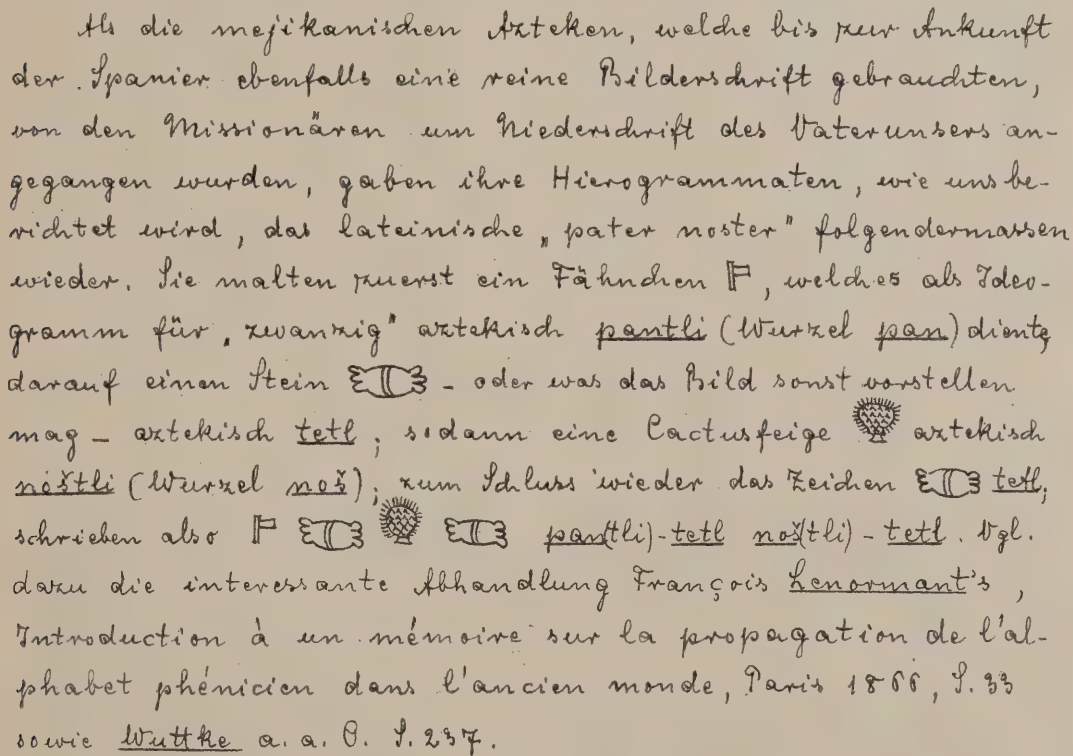 Als die mejikanischen Azteken, welche bis zur Ankunft
der Spanier ebenfalls eine reine Bilderschrift gebrauchten,
von den Missionären um Niederschrift des Vaterunsers an-
gegangen wurden, gaben ihre Hierogrammaten, wie uns be-
richtet wird, das lateinische „pater noster" folgendermassen
wieder. Sie malten zuerst ein Fähnchen, welches als Ideo-
gramm für „zwanzig" aztekisch pantli (Wurzel pan) diente,
darauf einen Stein - oder was das Bild sonst vorstellen
mag - aztekisch tetl; sodann eine Cactusfeige aztekisch
noštli (Wurzel noš); zum Schluss wieder das Zeichen tetl;
schrieben also pan(tli)-tetl noš(tli)-tetl. Vgl.
dazu die interessante Abhandlung François Lenormant's,
Introduction à un mémoire sur la propagation de l'al-
phabet phénicien dans l'ancien monde, Paris 1866, S. 33
sowie Wuttke a. a. O. S. 237.